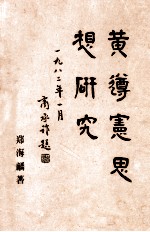 黄遵憲思
想研究
一九八二年一月
商承祚題
郑海麟著